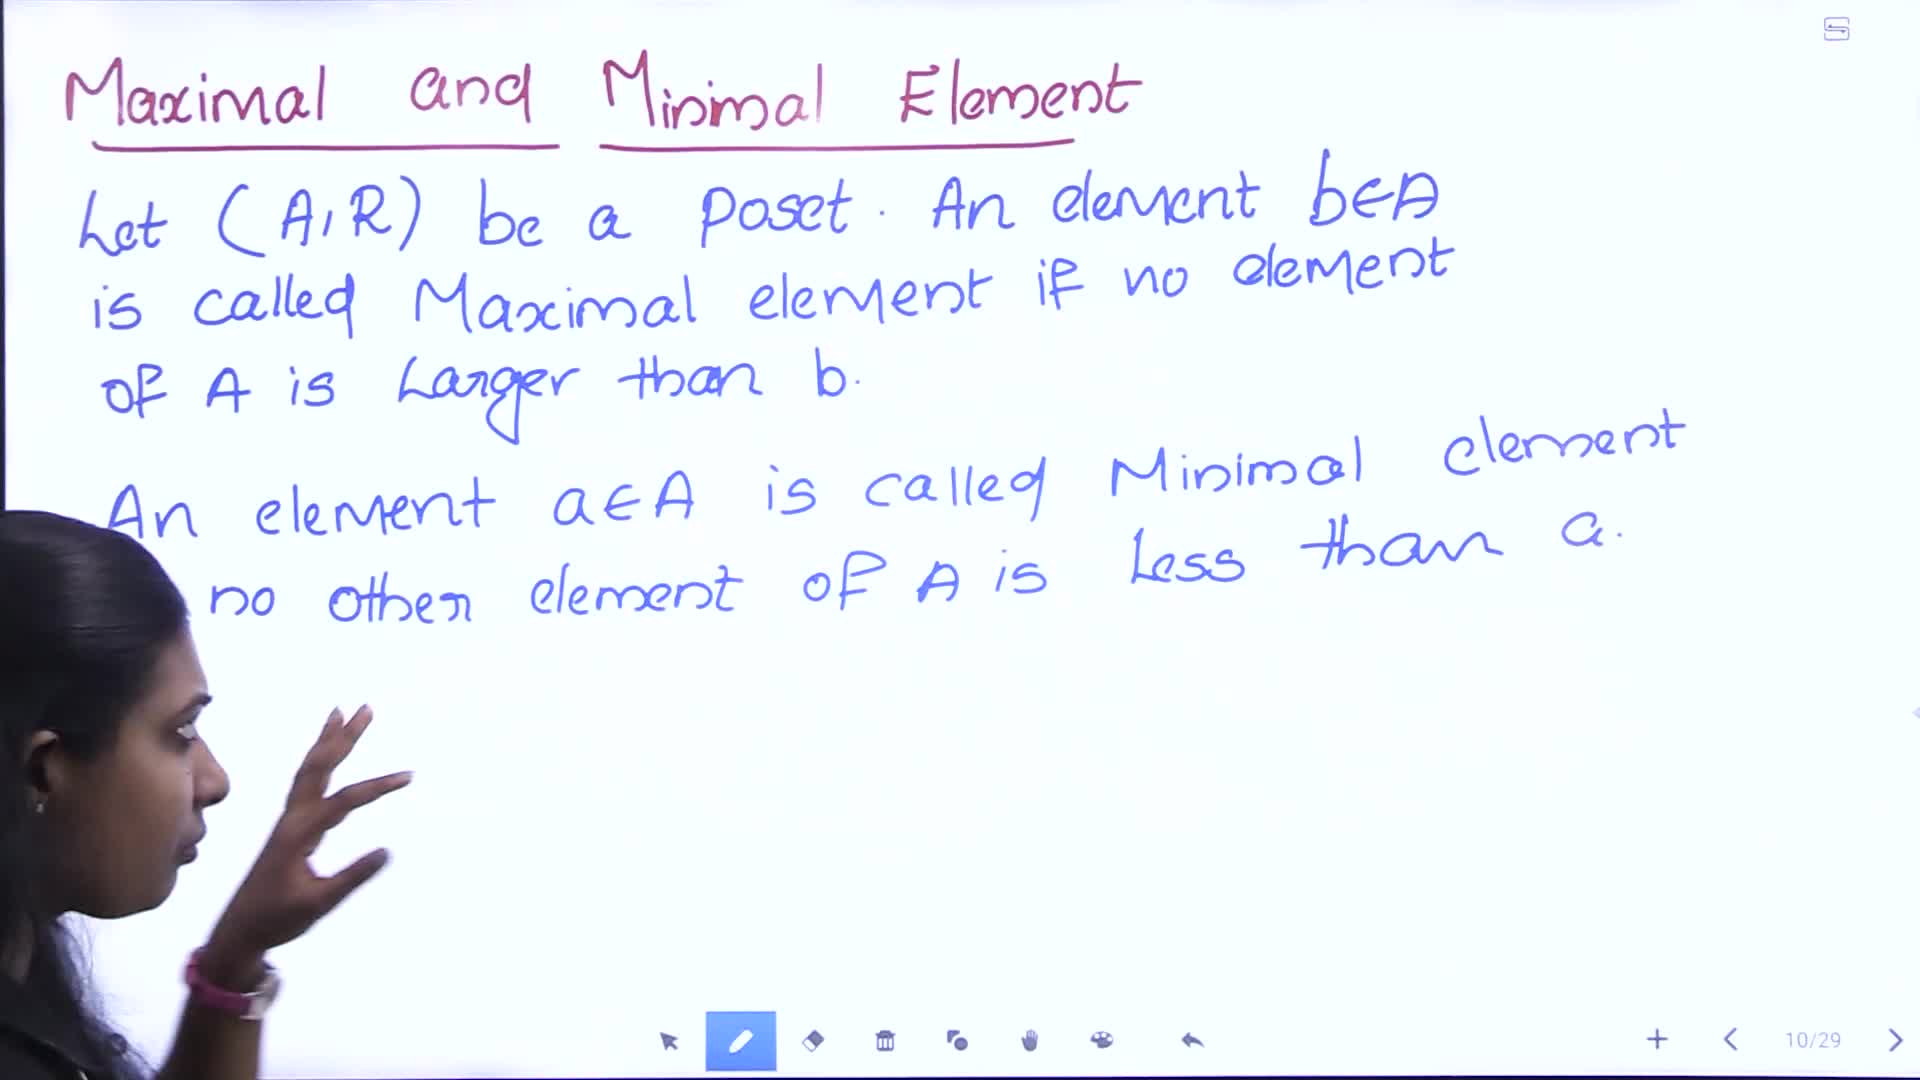 Maximal and Minimal Element
Let (A, R) be a Poset. An element b∈A
is called Maximal element if no element
of A is Larger than b.
An element a∈A is called Minimal element
no other element of A is Less than a.
10/29